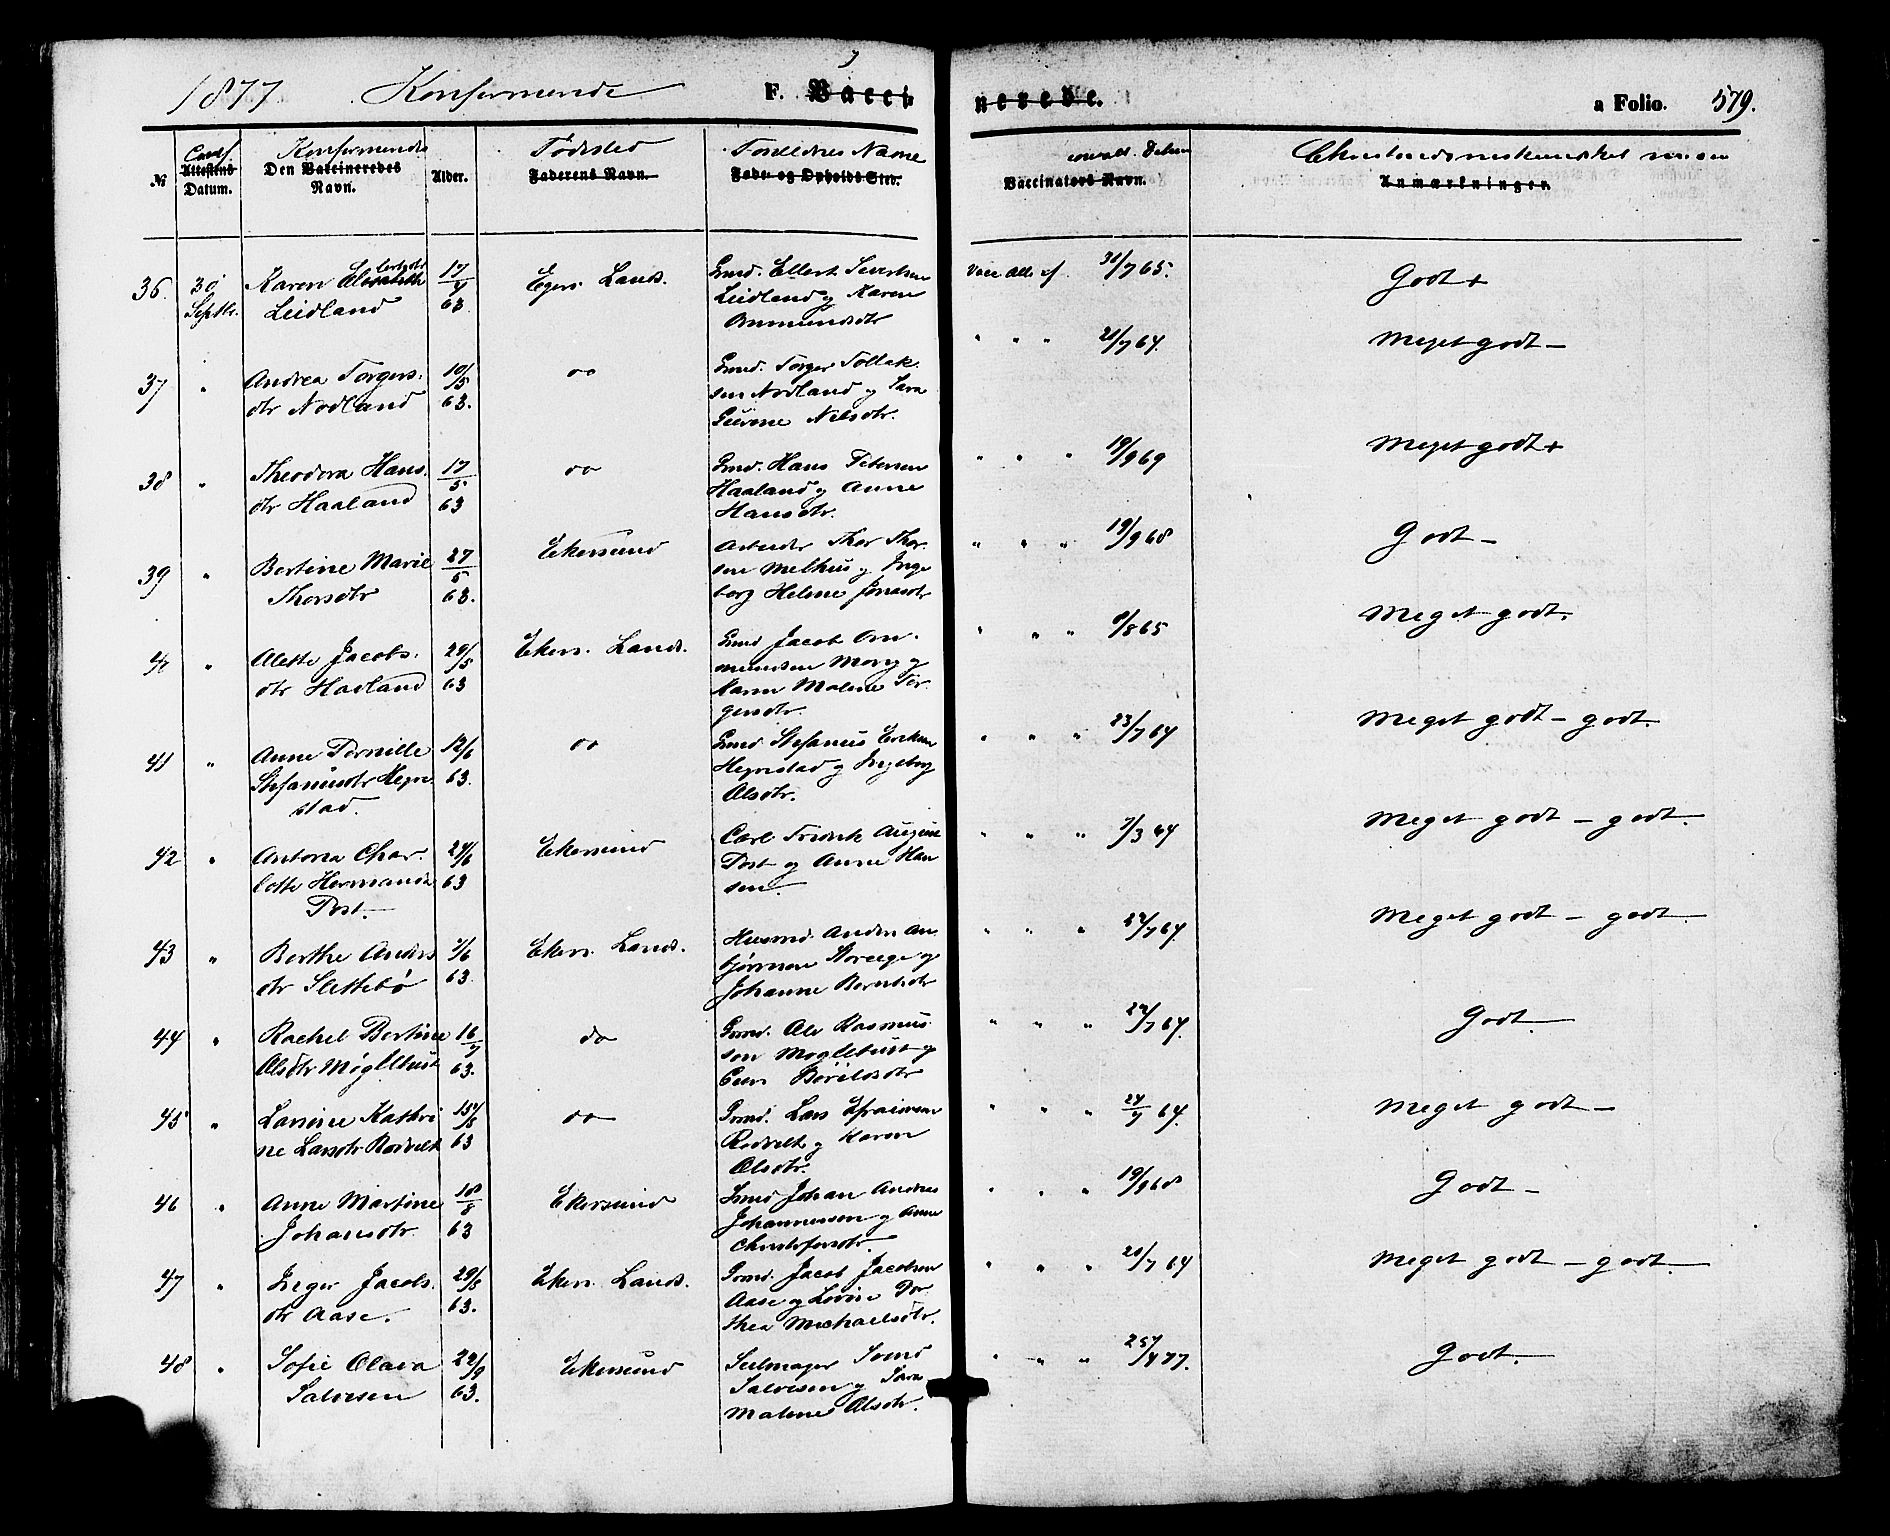 1877. Konfirmerede F. Vacci nerede. a Folio. 579.
№ Conf. Attestens Datum. Konfirmerede Den Vaccineredes Navn. Alder. Fødested Faderens Navn. Forældres Navne Føde- og Opholds Sted. Vaccinators Navn. Christendomskundskab Anmærkninger.
36. 30 Septbr. Karen Elisabeth Leidland 17/4 63 Egers. Lands. Grmd. Ellert Sivertsen Leidland og Karen Ommundsdtr Vacc. Att. af 31/7 65. Godt +
37 " Andrea Torgers. dtr Nodland 10/5 63. do Grmd. Torger Tollak. sen Nodland og Sara Gurine Nilsdtr. " " " 21/7 64. Meget godt –
38 " Theodora Hans. dtr Haaland 17/5 63 do Grmd. Hans Petersen Haaland og Anne Hansdtr. " " " 19/9 69 Meget godt +
39 " Bertine Marie Thorsdtr 27/5 63. Ekersund Arbeider Thor Thor. sen Melhus og Inge borg Helene Jonasdtr " " " 19/9 68 Godt –
40 " Alette Jacobs. dtr Havland 29/5 63 Ekers. Lands. Grmd Jacob Om. mundsen Mong og Karen Malene Tor. gersdtr. " " " 9/8 65 Meget godt.
41 " Anne Pernille Stefanusdtr Hegre stad. 12/6 63. do Grmd Stefanus Eriksen Hegrestad og Ingeborg Olsdtr. " " " 23/7 64 Meget godt – godt.
42 " Antona Char. lotte Hermanda Post. 24/6 63 Ekersund Carl Fredrik August Post og Anne Han sen. " " " 7/3 64 Meget godt – godt.
43 " Berthe Anders dtr Slettebø 7/6 63 Ekers. Lands. Husmd. Anders As. bjørnsen og Johanne Berntsdtr " " " 24/7 64. Meget godt – godt.
44 " Rachel Bertine Olsdtr Møglebust 16/7 63. do Grmd. Ole Rasmus sen Møglebust og Guri Børildsdtr " " " 24/7 64. Godt.
45 " Larsine Kathri ne Larsdtr Rødvelt 15/8 63 do Grmd. Lars Efraimsen Rødvelt og Karen Olsdtr. " " " 24/7 64. Meget godt –
46 " Anne Martine Johansdtr. 18/8 63 Ekersund Smed Johan Andreas Johannessen og Anne Christofersdtr. " " " 19/9 68 Godt –
47 " Inger Jacobs. dtr Aase. 29/8 63. Ekers. Lands. Grmd. Jacob Jacobsen Aase og Lovise Do thea Michaelsdtr. " " " 20/7 64 Meget godt – godt.
48 " Sofie Olava Salvesen 22/9 63. Ekersund Seilmager Svend Salvesen og Sara Malene Olsdtr. " " " 25/4 77. Godt.